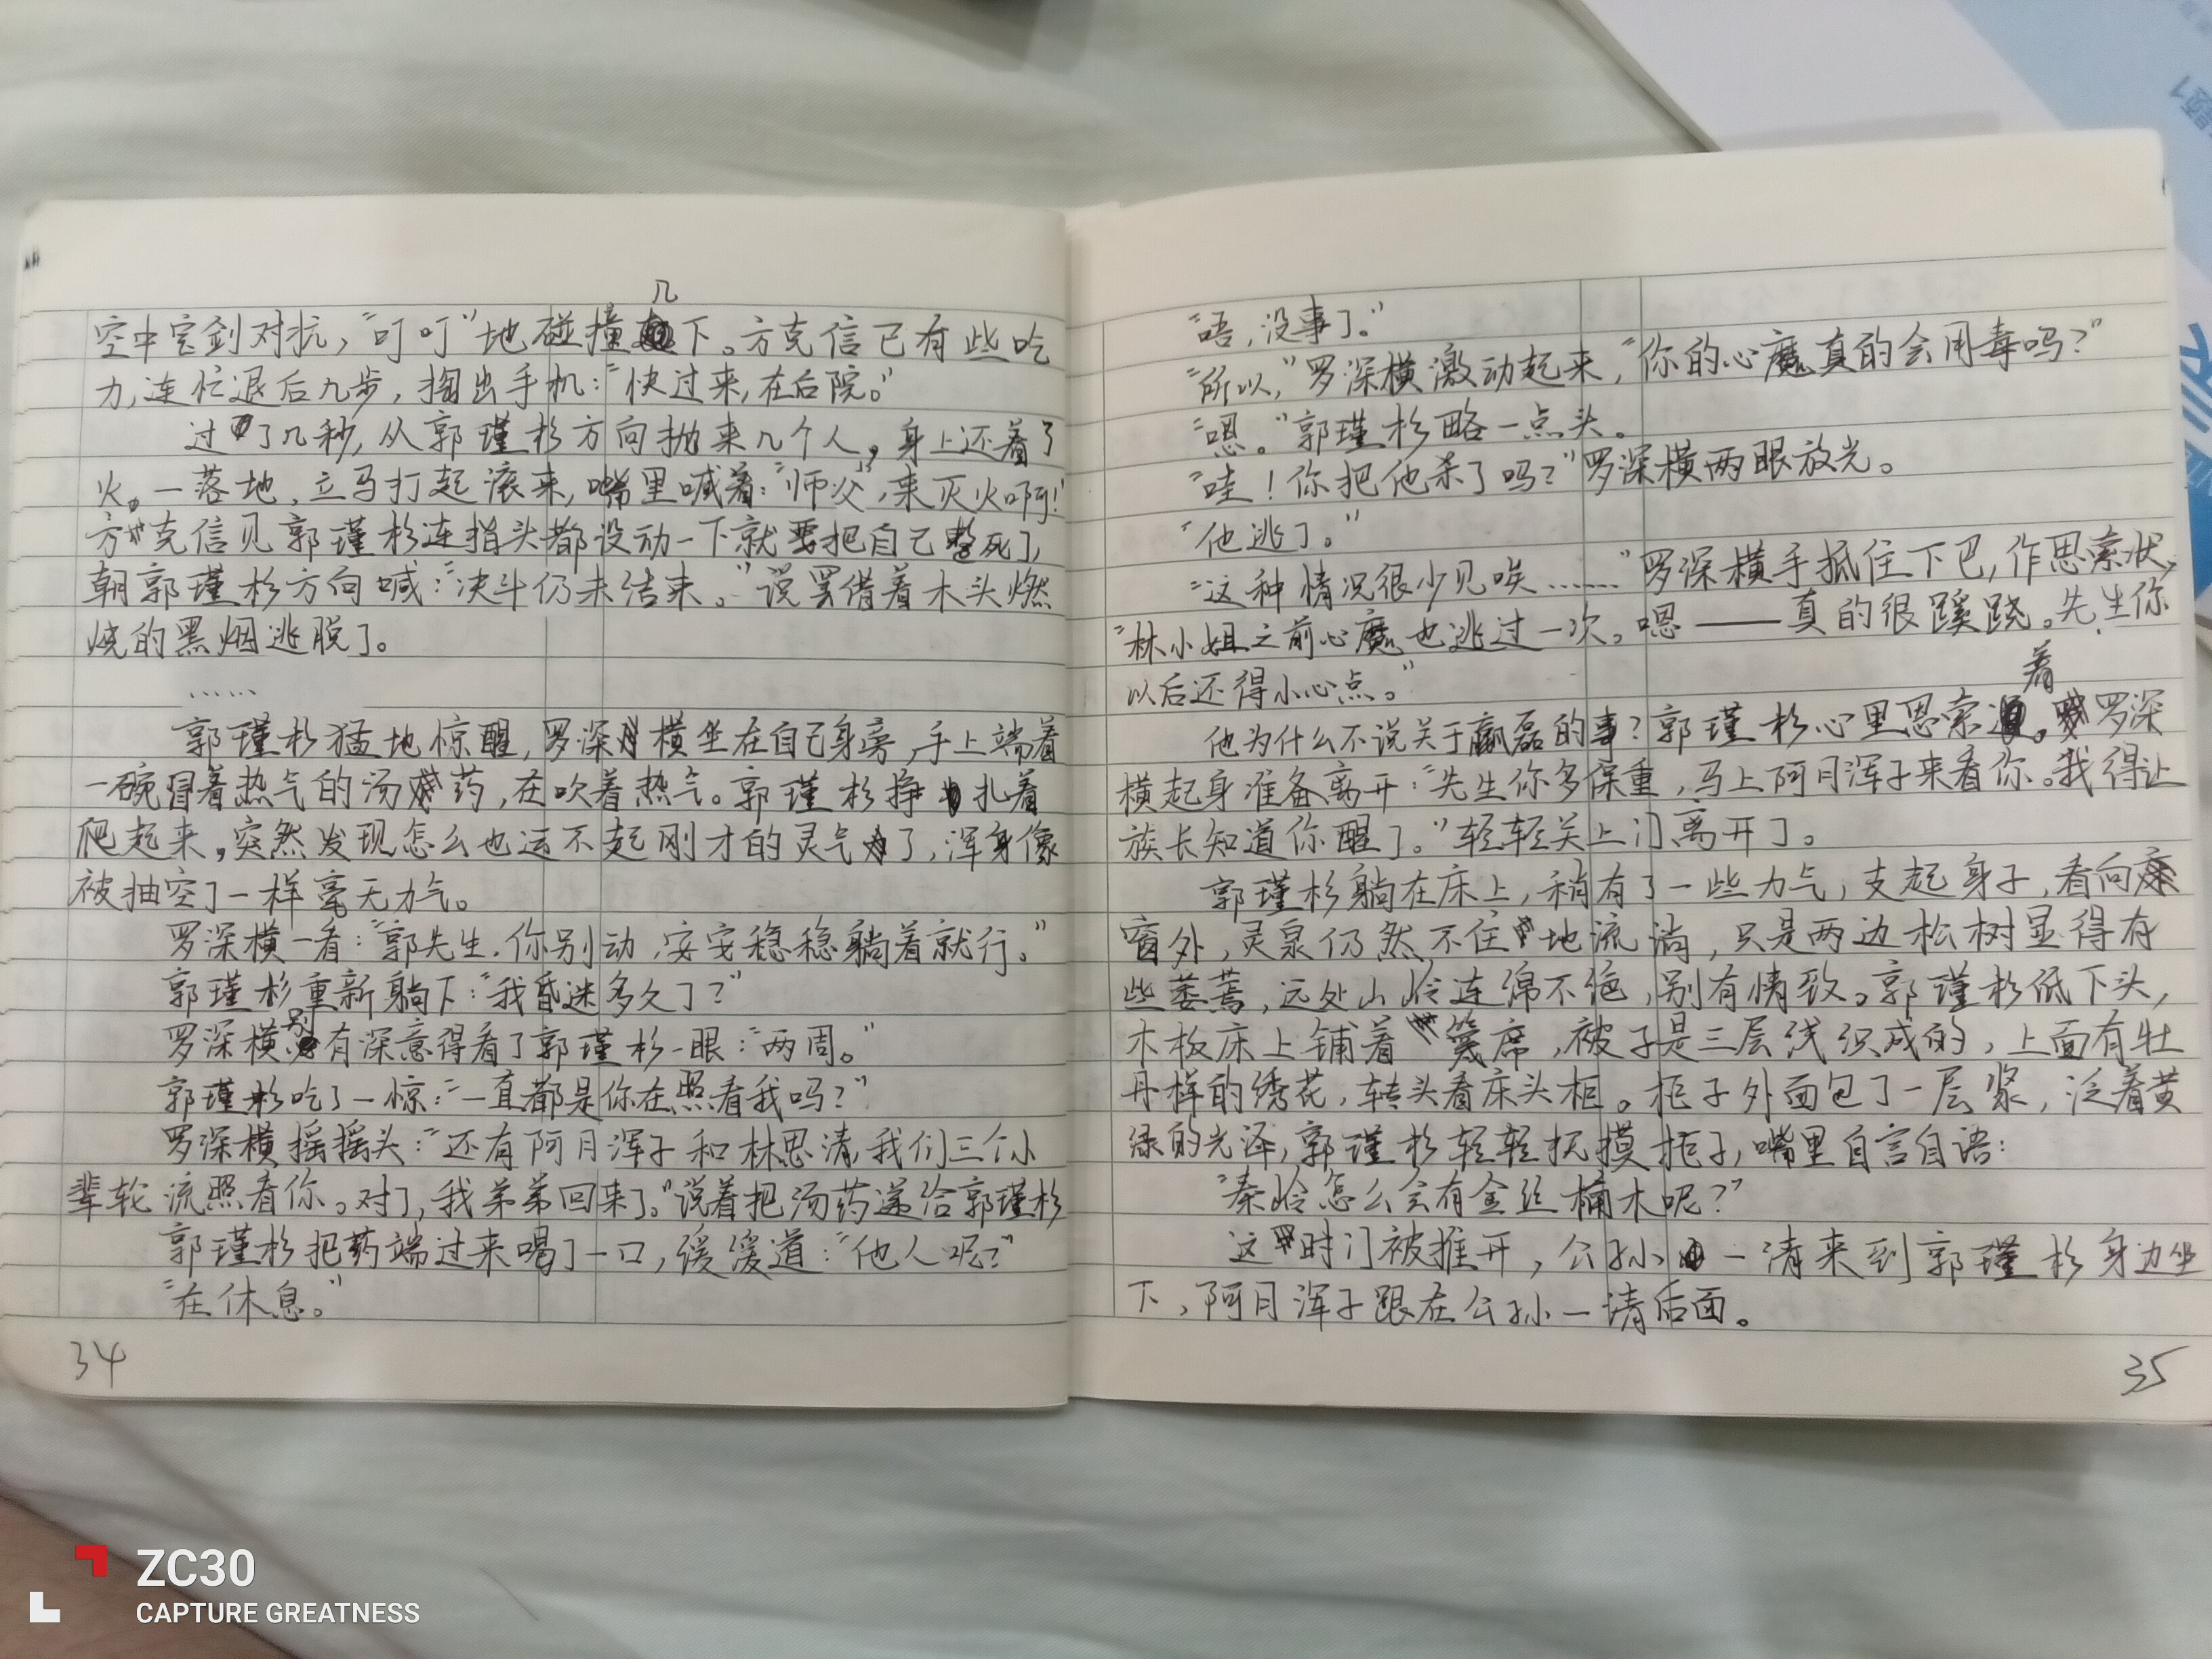 空中宝剑对抗，“叮叮”地碰撞几下。方克信已有些吃
力，连忙退后几步，掏出手机：“快过来，在后院。”
过了几秒，从郭瑾杉方向抛来几个人，身上还着了
火。一落地，立马打起滚来，嘴里喊着：“师父，来灭火啊！”
方克信见郭瑾杉连指头都没动一下就要把自己整死了，
朝郭瑾杉方向喊：“决斗仍未结束。”说罢借着木头燃
烧的黑烟逃脱了。
……
郭瑾杉猛地惊醒，罗深横坐在自己身旁，手上端着
一碗冒着热气的汤药，在吹着热气。郭瑾杉挣扎着
爬起来，突然发现怎么也运不起刚才的灵气了，浑身像
被抽空了一样毫无力气。
罗深横一看：“郭先生，你别动，安安稳稳躺着就行。”
郭瑾杉重新躺下：“我昏迷多久了？”
罗深横别有深意得看了郭瑾杉一眼：“两周。”
郭瑾杉吃了一惊：“一直都是你在照看我吗？”
罗深横摇摇头：“还有阿月浑子和林思清，我们三个小
辈轮流照看你。对了，我弟弟回来了。”说着把汤药递给郭瑾杉
郭瑾杉把药端过来喝了一口，缓缓道：“他人呢？”
“在休息。”
34
“唔，没事了。”
“所以，”罗深横激动起来，“你的心魔真的会用毒吗？”
“嗯。”郭瑾杉略一点头。
“哇！你把他杀了吗？”罗深横两眼放光。
“他逃了。”
“这种情况很少见唉……”罗深横手抵住下巴，作思索状，
“林小姐之前心魔也逃过一次。嗯——真的很蹊跷。先生你
以后还得小心点。”
他为什么不说关于嬴磊的事？郭瑾杉心里思索着。罗深
横起身准备离开：“先生你多保重，马上阿月浑子来看你。我得让
族长知道你醒了。”轻轻关上门离开了。
郭瑾杉躺在床上，稍有了一些力气，支起身子，看向
窗外，灵泉仍然不住地流淌，只是两边松树显得有
些萎蔫，远处山岭连绵不绝，别有情致。郭瑾杉低下头，
木板床上铺着篾席，被子是三层线织成的，上面有牡
丹样的绣花，转头看床头柜。柜子外面包了一层浆，泛着黄
绿的光泽，郭瑾杉轻轻抚摸柜子，嘴里自言自语：
“秦岭怎么会有金丝楠木呢？”
这时门被推开，公孙一清来到郭瑾杉身边坐
下，阿月浑子跟在公孙一清后面。
35
ZC30
CAPTURE GREATNESS